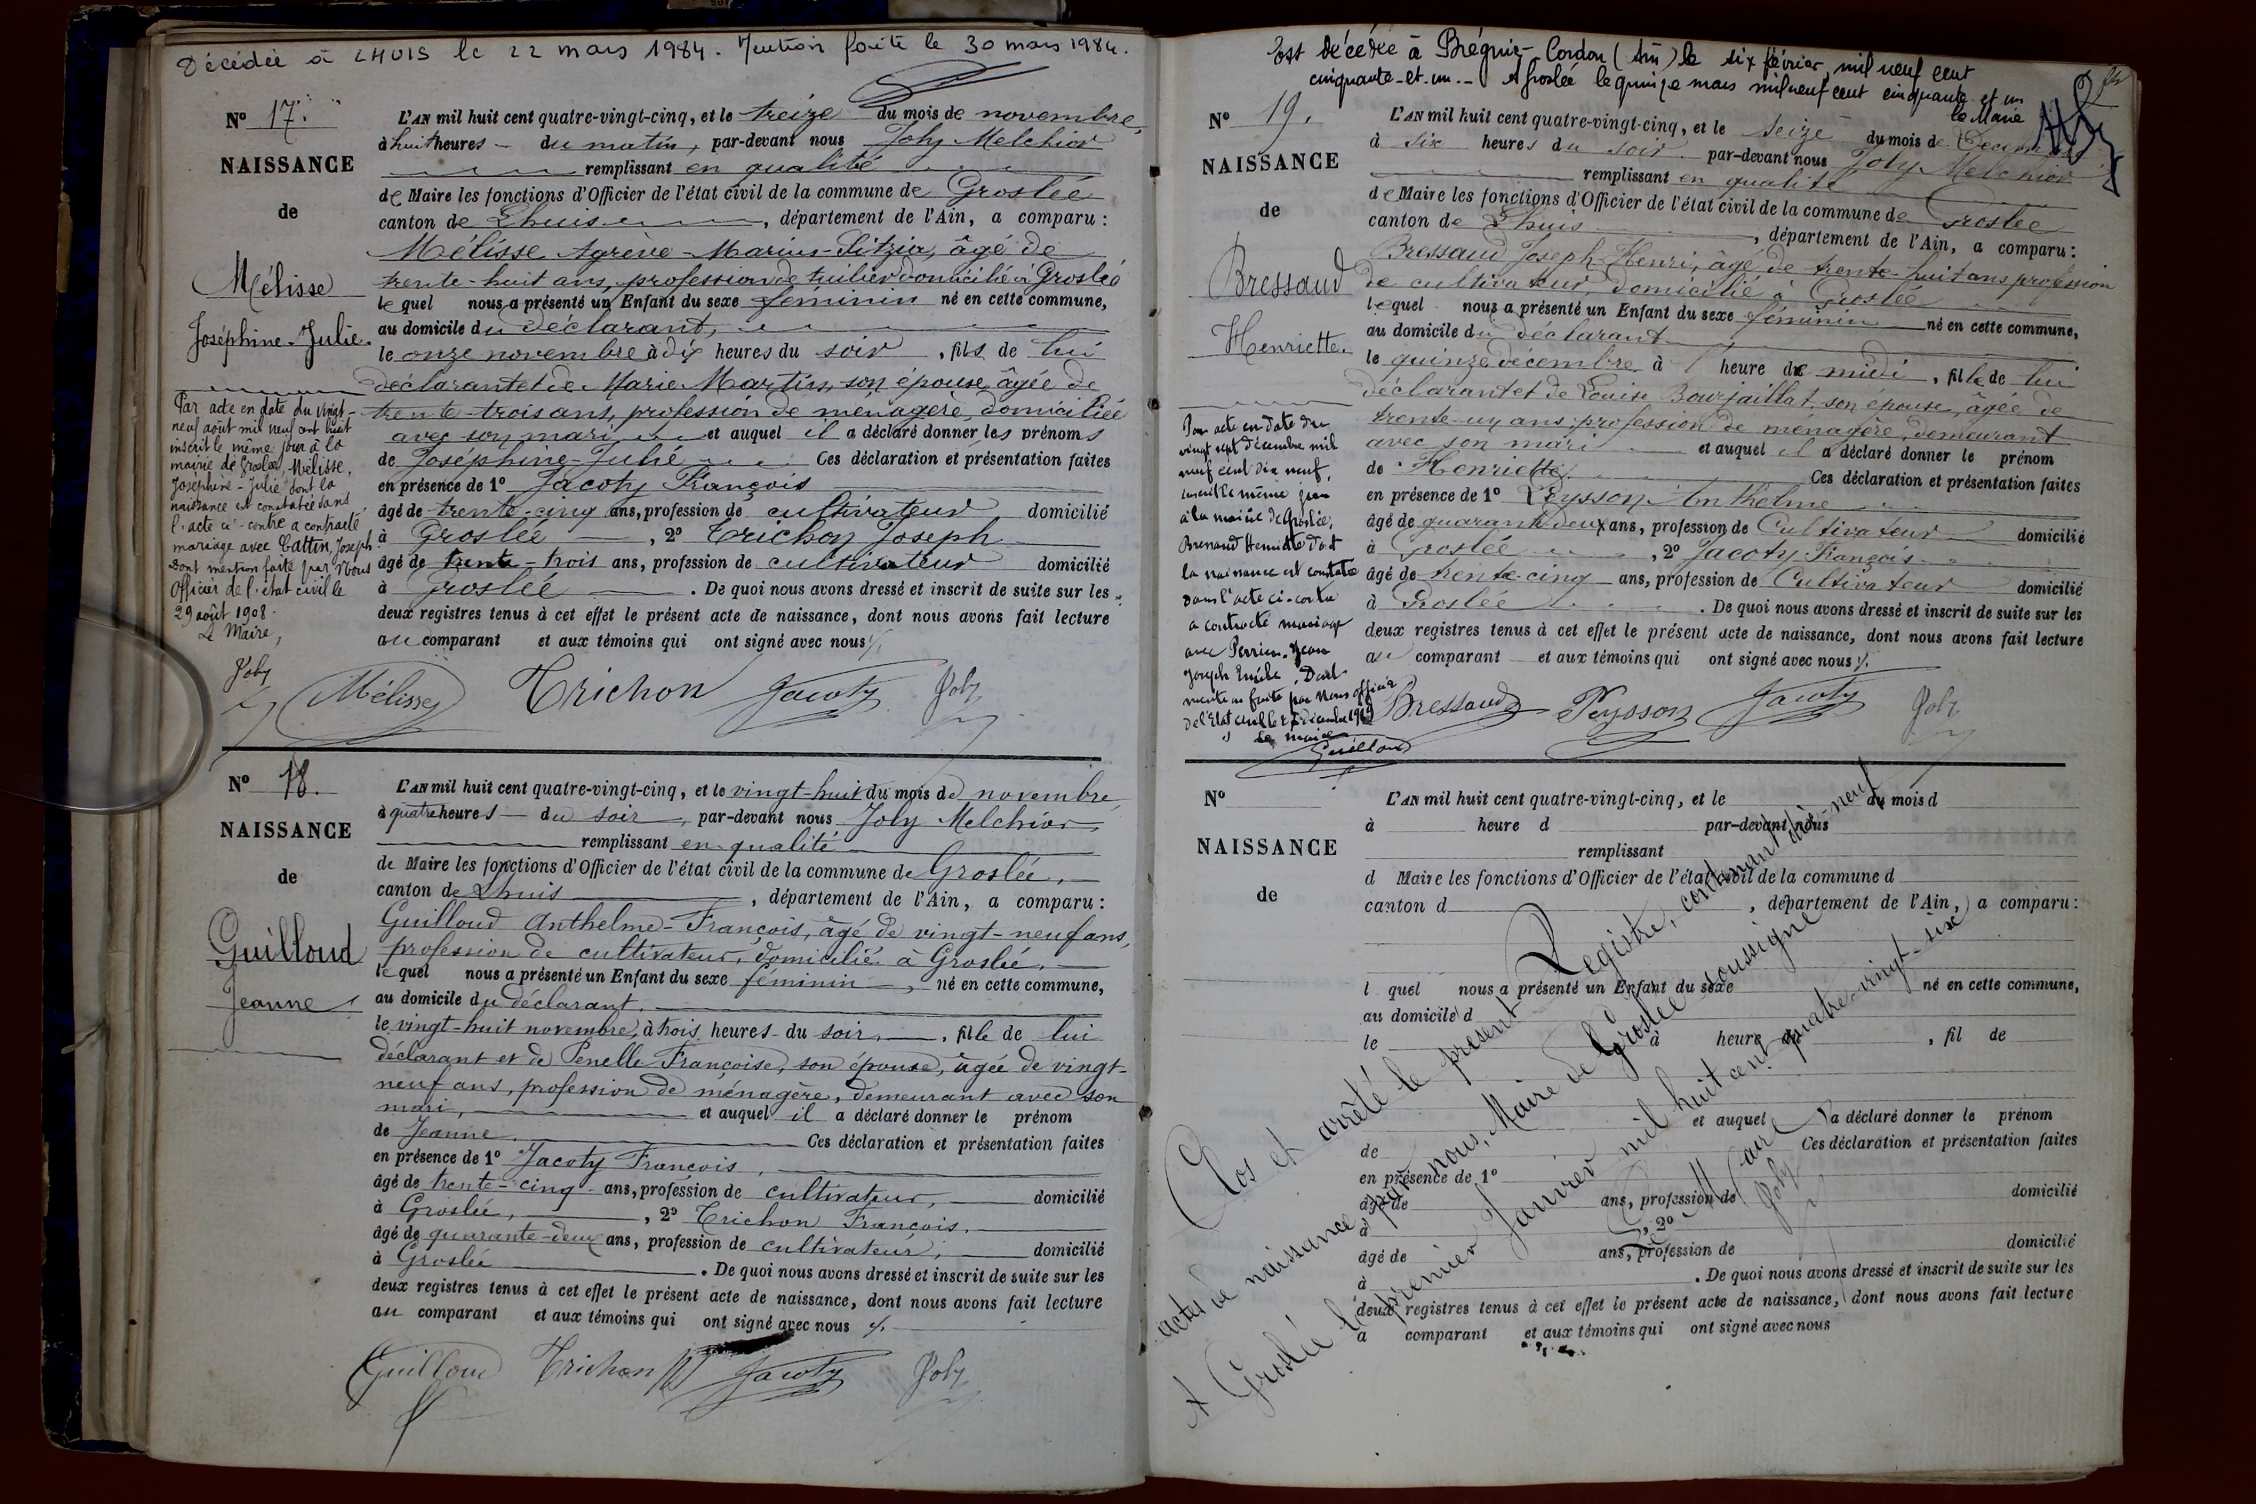 Décédée à LHUIS le 22 mars 1984. Mention faite le 30 mars 1984.
No 17.
NAISSANCE
de
Mélisse
Joséphine-Julie.
Par acte en date du vingt-
neuf août mil neuf cent huit
inscrit le même jour à la
mairie de Groslée, Mélisse,
Joséphine-Julie dont la
naissance est constatée dans
l'acte ci-contre a contracté
mariage avec Cattin, Joseph.
Dont mention faite par Nous
officier de l'état civil le
29 août 1908.
Le Maire,
Joly
L'AN mil huit cent quatre-vingt-cinq, et le treize du mois de novembre,
à huit heures du matin, par-devant nous Joly Melchior
remplissant en qualité
de Maire les fonctions d'Officier de l'état civil de la commune de Groslée
canton de Lhuis, département de l'Ain, a comparu :
Mélisse Agrève-Marius-Fitzin, âgé de
trente-huit ans, profession de tuilier domicilié à Groslée
lequel nous a présenté un Enfant du sexe féminin né en cette commune,
au domicile du déclarant,
le onze novembre à dix heures du soir, fils de lui
déclarant et de Marie Martin, son épouse âgée de
trente-trois ans, profession de ménagère, domiciliée
avec son mari et auquel il a déclaré donner les prénoms
de Joséphine-Julie Ces déclaration et présentation faites
en présence de 1o Jacoty François
âgé de trente-cinq ans, profession de cultivateur domicilié
à Groslée, 2o Trichon Joseph
âgé de trente-trois ans, profession de cultivateur domicilié
à Groslée. De quoi nous avons dressé et inscrit de suite sur les
deux registres tenus à cet effet le présent acte de naissance, dont nous avons fait lecture
au comparant et aux témoins qui ont signé avec nous
Mélisse Trichon Jacoty Joly
No 18.
NAISSANCE
de
Guilloud
Jeanne
L'AN mil huit cent quatre-vingt-cinq, et le vingt-huit du mois de novembre
à quatre heures du soir, par-devant nous Joly Melchior,
remplissant en qualité
de Maire les fonctions d'Officier de l'état civil de la commune de Groslée,
canton de Lhuis, département de l'Ain, a comparu :
Guilloud Anthelme-François, âgé de vingt-neuf ans,
profession de cultivateur, domicilié à Groslée,
lequel nous a présenté un Enfant du sexe féminin, né en cette commune,
au domicile du déclarant,
le vingt-huit novembre, à trois heures du soir, fille de lui
déclarant et de Penelle Françoise, son épouse, âgée de vingt-
neuf ans, profession de ménagère, demeurant avec son
mari, et auquel il a déclaré donner le prénom
de Jeanne. Ces déclaration et présentation faites
en présence de 1o Jacoty François,
âgé de trente-cinq ans, profession de cultivateur, domicilié
à Groslée, 2o Trichon François,
âgé de quarante-deux ans, profession de cultivateur, domicilié
à Groslée. De quoi nous avons dressé et inscrit de suite sur les
deux registres tenus à cet effet le présent acte de naissance, dont nous avons fait lecture
au comparant et aux témoins qui ont signé avec nous
Guilloud Trichon Jacoty Joly
Est décédée à Brégnier-Cordon (Ain) le six février mil neuf cent
cinquante-et-un.- A Groslée le quinze mars mil neuf cent cinquante et un
le Maire
No 19.
NAISSANCE
de
Bressaud
Henriette.
Par acte en date du
vingt sept décembre mil
neuf cent dix neuf,
inscrit le même jour
à la mairie de Groslée,
Bressaud Henriette dont
la naissance est constatée
dans l'acte ci-contre
a contracté mariage
avec Perrin Jean
Joseph Emile. Dont
mention faite par Nous officier
de l'Etat civil le 27 décembre 1919
Le maire
Guilloud
L'AN mil huit cent quatre-vingt-cinq, et le seize du mois de Décembre
à six heures du soir par-devant nous Joly Melchior
remplissant en qualité
de Maire les fonctions d'Officier de l'état civil de la commune de Groslée
canton de Lhuis, département de l'Ain, a comparu :
Bressaud Joseph-Henri, âgé de trente-huit ans profession
de cultivateur, domicilié à Groslée
lequel nous a présenté un Enfant du sexe féminin né en cette commune,
au domicile du déclarant
le quinze décembre à heure de midi, fille de lui
déclarant et de Louise Bourjaillat, son épouse, âgée de
trente-un ans, profession de ménagère, demeurant
avec son mari et auquel il a déclaré donner le prénom
de Henriette. Ces déclaration et présentation faites
en présence de 1o Peysson Anthelme
âgé de quarante deux ans, profession de Cultivateur domicilié
à Groslée, 2o Jacoty François
âgé de trente-cinq ans, profession de Cultivateur domicilié
à Groslée. De quoi nous avons dressé et inscrit de suite sur les
deux registres tenus à cet effet le présent acte de naissance, dont nous avons fait lecture
au comparant et aux témoins qui ont signé avec nous
Bressaud Peysson Jacoty Joly
No
NAISSANCE
de
L'AN mil huit cent quatre-vingt-cinq, et le du mois d
à heure d par-devant nous
remplissant
d Maire les fonctions d'Officier de l'état civil de la commune d
canton d, département de l'Ain, a comparu :
l quel nous a présenté un Enfant du sexe né en cette commune,
au domicile d
le à heure d, fil de
et auquel a déclaré donner le prénom
de Ces déclaration et présentation faites
en présence de 1o
âgé de ans, profession de domicilié
à, 2o
âgé de ans, profession de domicilié
à. De quoi nous avons dressé et inscrit de suite sur les
deux registres tenus à cet effet le présent acte de naissance, dont nous avons fait lecture
a comparant et aux témoins qui ont signé avec nous
Clos et arrêté le présent Registre, contenant dix-neuf
actes de naissance par nous, Maire de Groslée soussigné
A Groslée le premier Janvier mil huit cent quatre-vingt-six
Le Maire
Joly